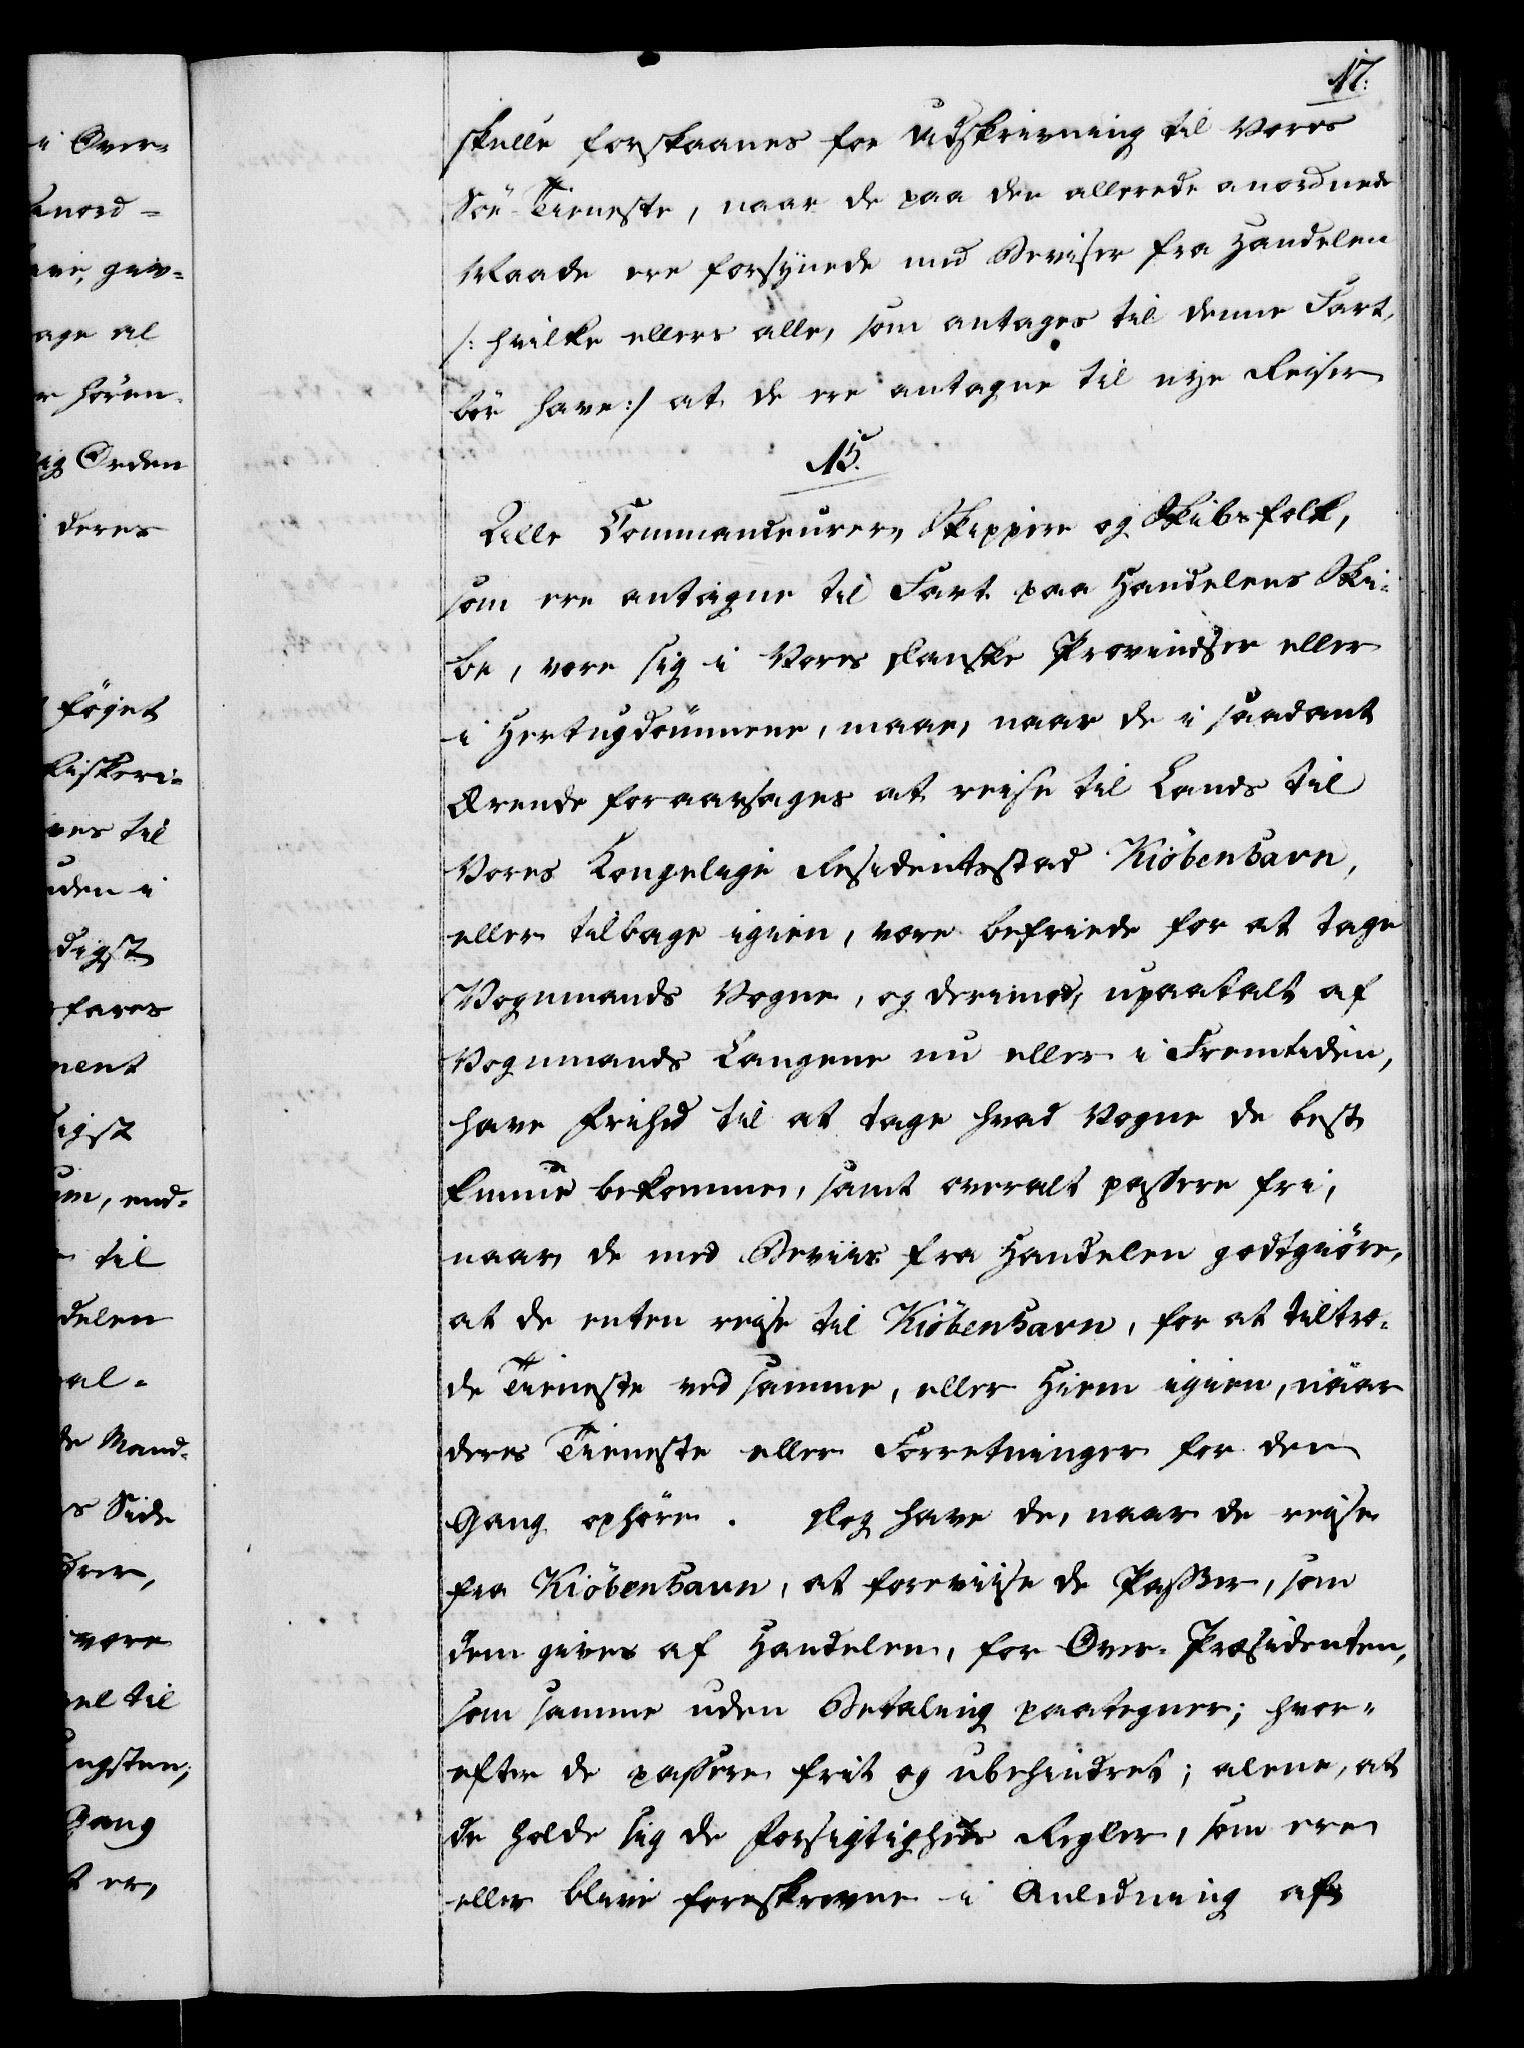 17.
skulle forskaanes for Udskrivning til Vores
Söe-Tieneste, naar de paa den allerede anordnede
Maade ere forsÿnede med Beviser fra Handelen
/: hvilke ellers alle, som antages til denne Fart,
bör have :/ at de ere antagne til nye Reiser
15.
Alle Commandeurer, Skippere og Skibsfolk,
som ere antagne til Fart paa Handelens Ski-
be, være sig i Vores Danske Provindser eller
i Hertugdömmene, maae, naar de i saadant
Ærende foraarsages at reise til Lands til
Vores Kongelige Residentsstad Kiöbenhavn,
eller tilbage igien, være befriede for at tage
Vognmands Vogne, og derimod, upaatalt af
Vognmands Laugene nu eller i Fremtiden,
have Frihed til at tage hvad Vogne de best
kunne bekomme, samt overalt passere fri,
naar de med Beviis fra Handelen godtgiöre,
at de enten reise til Kiöbenhavn, for at tiltræ-
de Tieneste ved samme, eller Hiem igien, naar
deres Tieneste eller Forretninger for den
Gang ophöre. Dog have de, naar de reise
fra Kiöbenhavn, at foreviise de Passer, som
dem gives af Handelen, for Over-Præsidenten,
som samme uden Betaling paategner; hvor-
efter de passere frit og ubehindret; alene, at
de holde sig de Forsigtigheds Regler, som ere
eller blive foreskrevne i Anledning af
i Over-
anord-
give,
tage al
hören-
Orden
deres
föget
Fiskeri-
ves til
uden i
digst
fares
ment
digst
um, end-
til
delen
al-
de Mand-
s Side
drer,
være
vel til
ngsten;
Gang
t er,